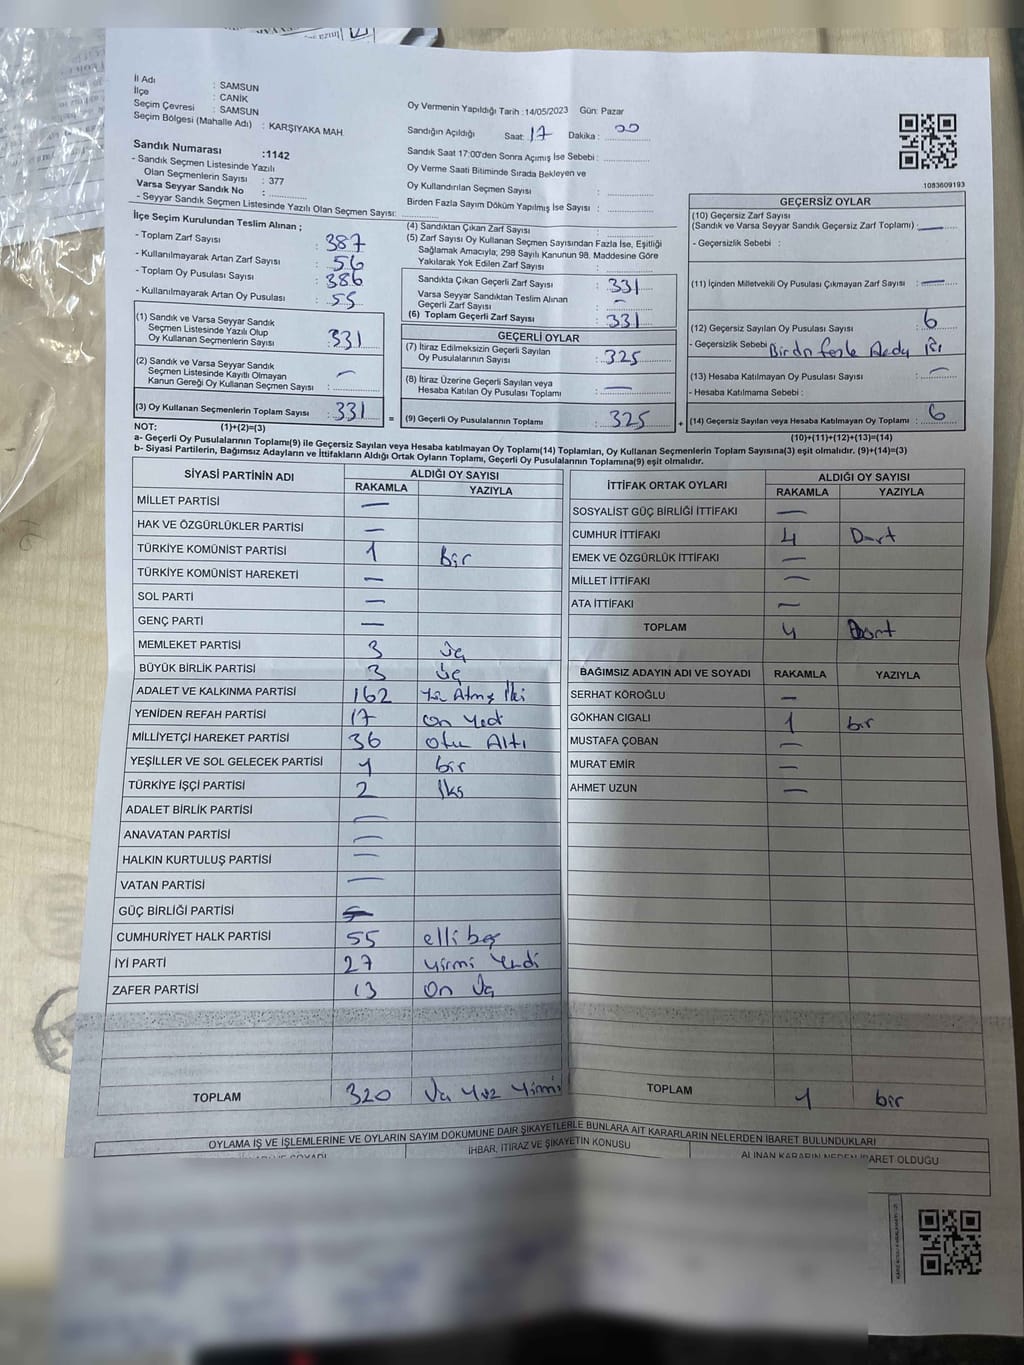 İl Adı : SAMSUN
İlçe : CANİK
Seçim Çevresi : SAMSUN
Seçim Bölgesi (Mahalle Adı) : KARŞIYAKA MAH.
Sandık Numarası :1142
- Sandık Seçmen Listesinde Yazılı
Olan Seçmenlerin Sayısı : 377
Varsa Seyyar Sandık No :
- Seyyar Sandık Seçmen Listesinde Yazılı Olan Seçmen Sayısı:
Oy Vermenin Yapıldığı Tarih :14/05/2023 Gün: Pazar
Sandığın Açıldığı Saat: 17 Dakika : 00
Sandık Saat 17:00'den Sonra Açmış İse Sebebi :
Oy Verme Saati Bitiminde Sırada Bekleyen ve
Oy Kullandırılan Seçmen Sayısı :
Birden Fazla Sayım Döküm Yapılmış İse Sayısı :
1083609193
İlçe Seçim Kurulundan Teslim Alınan ;
- Toplam Zarf Sayısı : 387
- Kullanılmayarak Artan Zarf Sayısı : 56
- Toplam Oy Pusulası Sayısı : 386
- Kullanılmayarak Artan Oy Pusulası : 55
(1) Sandık ve Varsa Seyyar Sandık
Seçmen Listesinde Yazılı Olup
Oy Kullanan Seçmenlerin Sayısı : 331
(2) Sandık ve Varsa Seyyar Sandık
Seçmen Listesinde Kayıtlı Olmayan
Kanun Gereği Oy Kullanan Seçmen Sayısı : —
(3) Oy Kullanan Seçmenlerin Toplam Sayısı : 331
(4) Sandıktan Çıkan Zarf Sayısı :
(5) Zarf Sayısı Oy Kullanan Seçmen Sayısından Fazla İse, Eşitliği
Sağlamak Amacıyla; 298 Sayılı Kanunun 98. Maddesine Göre
Yakılarak Yok Edilen Zarf Sayısı :
Sandıkta Çıkan Geçerli Zarf Sayısı : 331
Varsa Seyyar Sandıktan Teslim Alınan
Geçerli Zarf Sayısı : —
(6) Toplam Geçerli Zarf Sayısı : 331
GEÇERLİ OYLAR
(7) İtiraz Edilmeksizin Geçerli Sayılan
Oy Pusulalarının Sayısı : 325
(8) İtiraz Üzerine Geçerli Sayılan veya
Hesaba Katılan Oy Pusulası Toplamı : —
= (9) Geçerli Oy Pusulalarının Toplamı : 325 +
GEÇERSİZ OYLAR
(10) Geçersiz Zarf Sayısı
(Sandık ve Varsa Seyyar Sandık Geçersiz Zarf Toplamı) : —
- Geçersizlik Sebebi :
(11) İçinden Milletvekili Oy Pusulası Çıkmayan Zarf Sayısı : —
(12) Geçersiz Sayılan Oy Pusulası Sayısı : 6
- Geçersizlik Sebebi :
(13) Hesaba Katılmayan Oy Pusulası Sayısı : —
- Hesaba Katılmama Sebebi :
(14) Geçersiz Sayılan veya Hesaba Katılmayan Oy Toplamı : 6
NOT: (1)+(2)=(3)
(10)+(11)+(12)+(13)=(14)
a- Geçerli Oy Pusulalarının Toplamı(9) ile Geçersiz Sayılan veya Hesaba katılmayan Oy Toplamı(14) Toplamları, Oy Kullanan Seçmenlerin Toplam Sayısına(3) eşit olmalıdır. (9)+(14)=(3)
b- Siyasi Partilerin, Bağımsız Adayların ve İttifakların Aldığı Ortak Oyların Toplamı, Geçerli Oy Pusulalarının Toplamına(9) eşit olmalıdır.
SİYASİ PARTİNİN ADI ALDIĞI OY SAYISI
RAKAMLA YAZIYLA
MİLLET PARTİSİ —
HAK VE ÖZGÜRLÜKLER PARTİSİ —
TÜRKİYE KOMÜNİST PARTİSİ 1 Bir
TÜRKİYE KOMÜNİST HAREKETİ —
SOL PARTİ —
GENÇ PARTİ —
MEMLEKET PARTİSİ 3 üç
BÜYÜK BİRLİK PARTİSİ 3 üç
ADALET VE KALKINMA PARTİSİ 162 Yüz Atmış İki
YENİDEN REFAH PARTİSİ 17 on Yedi
MİLLİYETÇİ HAREKET PARTİSİ 36 otuz Altı
YEŞİLLER VE SOL GELECEK PARTİSİ 1 bir
TÜRKİYE İŞÇİ PARTİSİ 2 İki
ADALET BİRLİK PARTİSİ —
ANAVATAN PARTİSİ —
HALKIN KURTULUŞ PARTİSİ —
VATAN PARTİSİ —
GÜÇ BİRLİĞİ PARTİSİ —
CUMHURİYET HALK PARTİSİ 55 elli beş
İYİ PARTİ 27 yirmi Yedi
ZAFER PARTİSİ 13 On Üç
TOPLAM 320 Üç Yüz Yirmi
İTTİFAK ORTAK OYLARI ALDIĞI OY SAYISI
RAKAMLA YAZIYLA
SOSYALİST GÜÇ BİRLİĞİ İTTİFAKI —
CUMHUR İTTİFAKI 4 Dört
EMEK VE ÖZGÜRLÜK İTTİFAKI —
MİLLET İTTİFAKI —
ATA İTTİFAKI —
TOPLAM 4 Dört
BAĞIMSIZ ADAYIN ADI VE SOYADI RAKAMLA YAZIYLA
SERHAT KÖROĞLU —
GÖKHAN CIGALI 1 bir
MUSTAFA ÇOBAN —
MURAT EMİR —
AHMET UZUN —
TOPLAM 1 bir
OYLAMA İŞ VE İŞLEMLERİNE VE OYLARIN SAYIM DÖKÜMÜNE DAİR ŞİKAYETLERLE BUNLARA AİT KARARLARIN NELERDEN İBARET BULUNDUKLARI
İHBAR, İTİRAZ VE ŞİKAYETİN KONUSU
ALINAN KARARIN NEDEN İBARET OLDUĞU